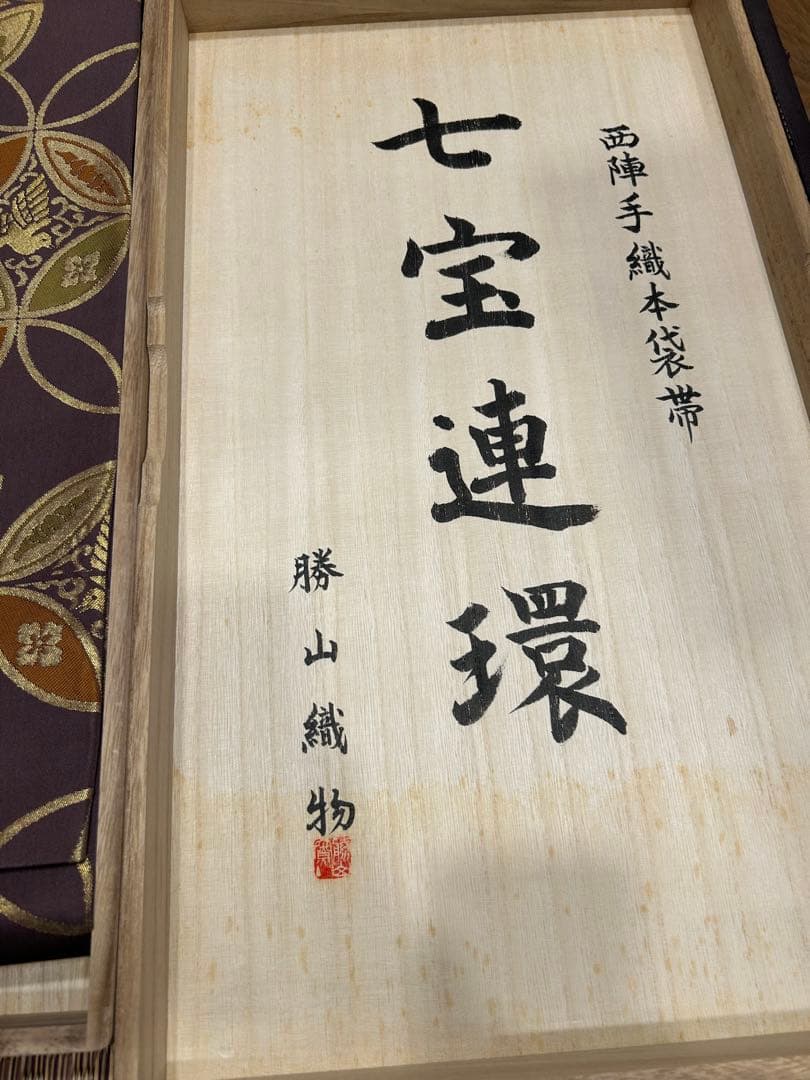 西陣手織本袋帯
七宝連環
勝山織物